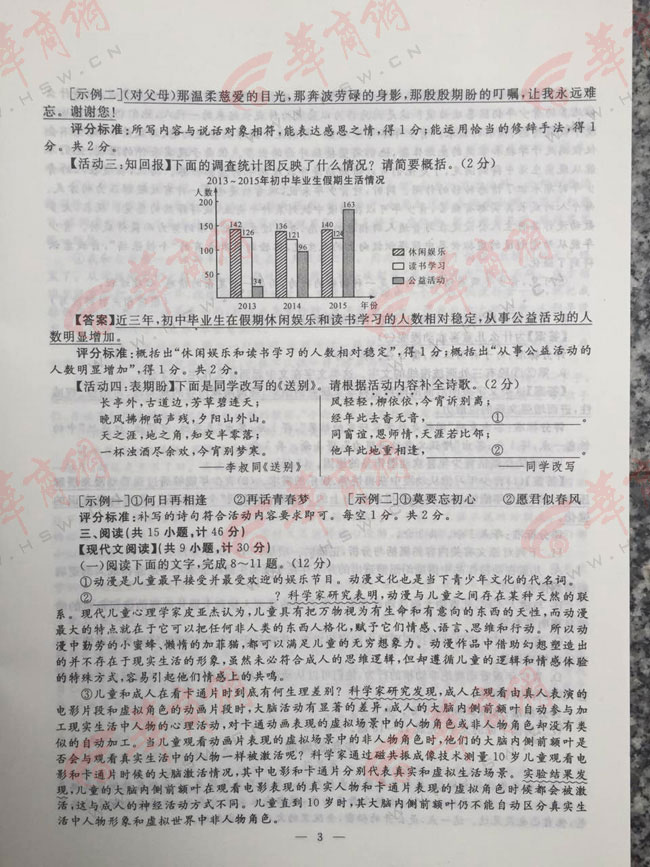 [示例二](对父母)那温柔慈爱的目光,那奔波劳碌的身影,那殷殷期盼的叮嘱,让我永远难
忘。谢谢您!
评分标准:所写内容与说话对象相符,能表达感恩之情,得1分;能运用恰当的修辞手法,得1
分。共2分。
【活动三:知回报】下面的调查统计图反映了什么情况?请简要概括。(2分)
2013~2015年初中毕业生假期生活情况
人数
200
150
100
50
0
142
126
34
136
121
96
140
124
163
2013 2014 2015 年份
休闲娱乐
读书学习
公益活动
【答案】近三年,初中毕业生在假期休闲娱乐和读书学习的人数相对稳定,从事公益活动的人
数明显增加。
评分标准:概括出“休闲娱乐和读书学习的人数相对稳定”,得1分;概括出“从事公益活动的
人数明显增加”,得1分。共2分。
【活动四:表期盼】下面是同学改写的《送别》。请根据活动内容补全诗歌。(2分)
长亭外,古道边,芳草碧连天;
晚风拂柳笛声残,夕阳山外山。
天之涯,地之角,知交半零落;
一杯浊酒尽余欢,今宵别梦寒。
——李叔同《送别》
风轻轻,柳依依,今宵诉别离;
经年此去杳无音,①。
同窗谊,恩师情,天涯若比邻;
他年此地重相逢,②。
——同学改写
[示例一]①何日再相逢 ②再话青春梦 [示例二]①莫要忘初心 ②愿君似春风
评分标准:补写的诗句符合活动内容要求即可。每空1分。共2分。
三、阅读(共15小题,计46分)
【现代文阅读】(共9小题,计30分)
(一)阅读下面的文字,完成8~11题。(12分)
①动漫是儿童最早接受并最受欢迎的娱乐节目。动漫文化也是当下青少年文化的代名词。
②?科学家研究表明,动漫与儿童之间存在某种天然的联
系。现代儿童心理学家皮亚杰认为,儿童具有把万物视为有生命和有意向的东西的天性,而动漫
最大的特点就在于它可以把任何非人类的东西人格化,赋予它们情感、语言、思维和行动。所以动
漫中勤劳的小蜜蜂、懒惰的加菲猫,都可以满足儿童的无穷想象力。动漫作品中借助幻想塑造出
的并不存在于现实生活的形象,虽然未必符合成人的思维逻辑,但却遵循儿童的逻辑和情感体验
的特殊方式,容易引起他们情感上的共鸣。
③儿童和成人在看卡通片时到底有何生理差别?科学家研究发现,成人在观看由真人表演的
电影片段和虚拟角色的动画片段时,大脑活动有显著的差异,成人的大脑内侧前额叶自动参与加
工现实生活中人物的心理活动,对卡通动画表现的虚拟场景中的人物角色或非人物角色却没有类
似的自动加工。当儿童观看动画片表现的虚拟场景中的非人物角色时,他们的大脑内侧前额叶是
否会与观看真实生活中的人物一样被激活呢?科学家通过磁共振成像技术测量10岁儿童观看电
影和卡通片时候的大脑激活情况,其中电影和卡通片分别代表真实和虚拟生活场景。实验结果发
现,儿童的大脑内侧前额叶在观看电影表现的真实人物和卡通片表现的虚拟角色时候都会被激
活,这与成人的神经活动方式不同。儿童直到10岁时,其大脑内侧前额叶仍不能自动区分真实生
活中人物形象和虚拟世界中非人物角色。
— 3 —
华商网
WWW.HSW.CN